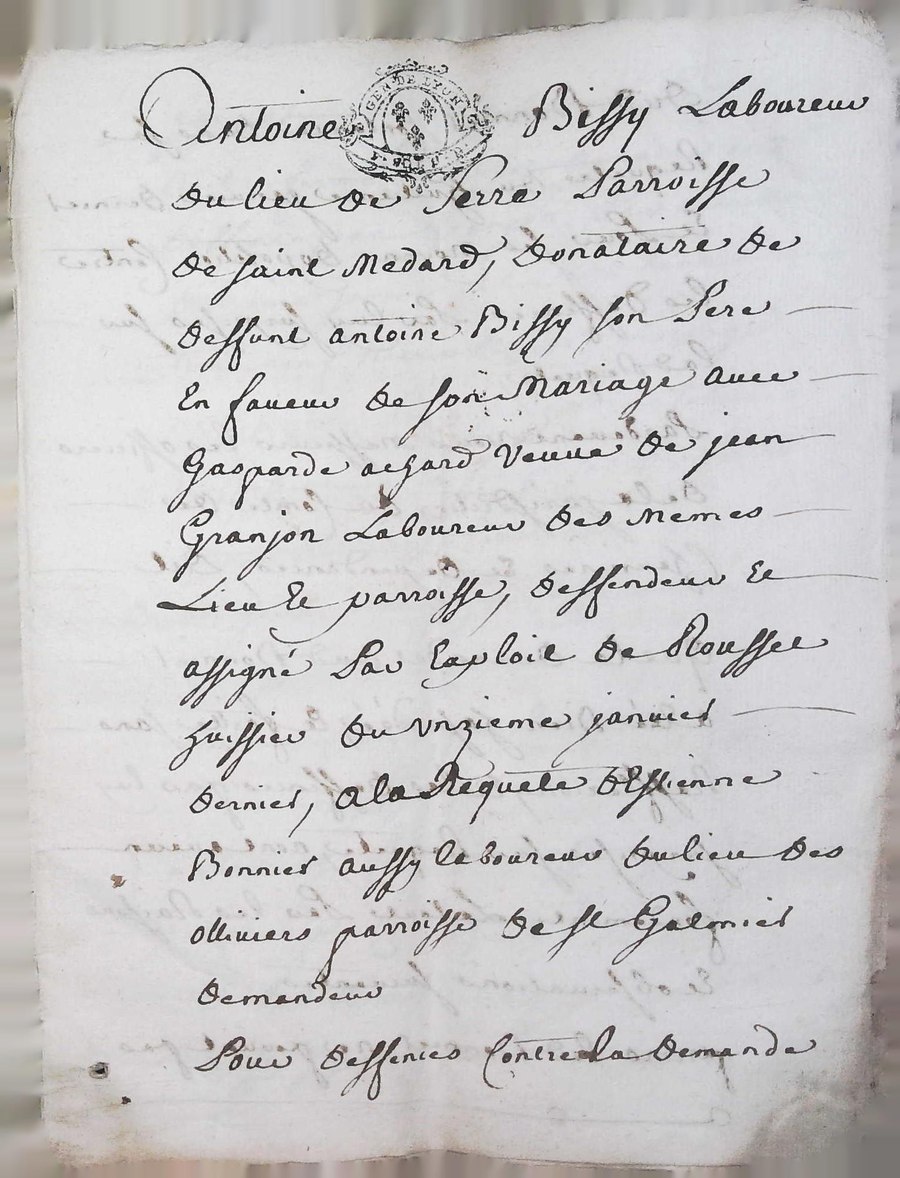 Antoine Bissy Laboureur
GEN. DE LYON
du lieu de Serre Parroisse
de saint Medard, donataire de
deffunt antoine Bissy son Pere
En faveur de son Mariage avec
Gasparde achard veuve de jean
Granjon Laboureur des Memes
Lieu Et parroisse, deffendeur Et
assigné Par Exploit de Rousset
huissier du unzieme janvier
dernier, a la Requete d'Estienne
Bonnier aussy laboureur du lieu des
olliviers parroisse de st Galmier
demandeur
Pour deffences Contre la demande